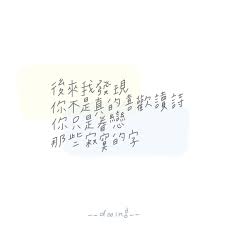 後來我發現
你不是真的喜歡讀詩
你只是眷戀
那些寂寞的字